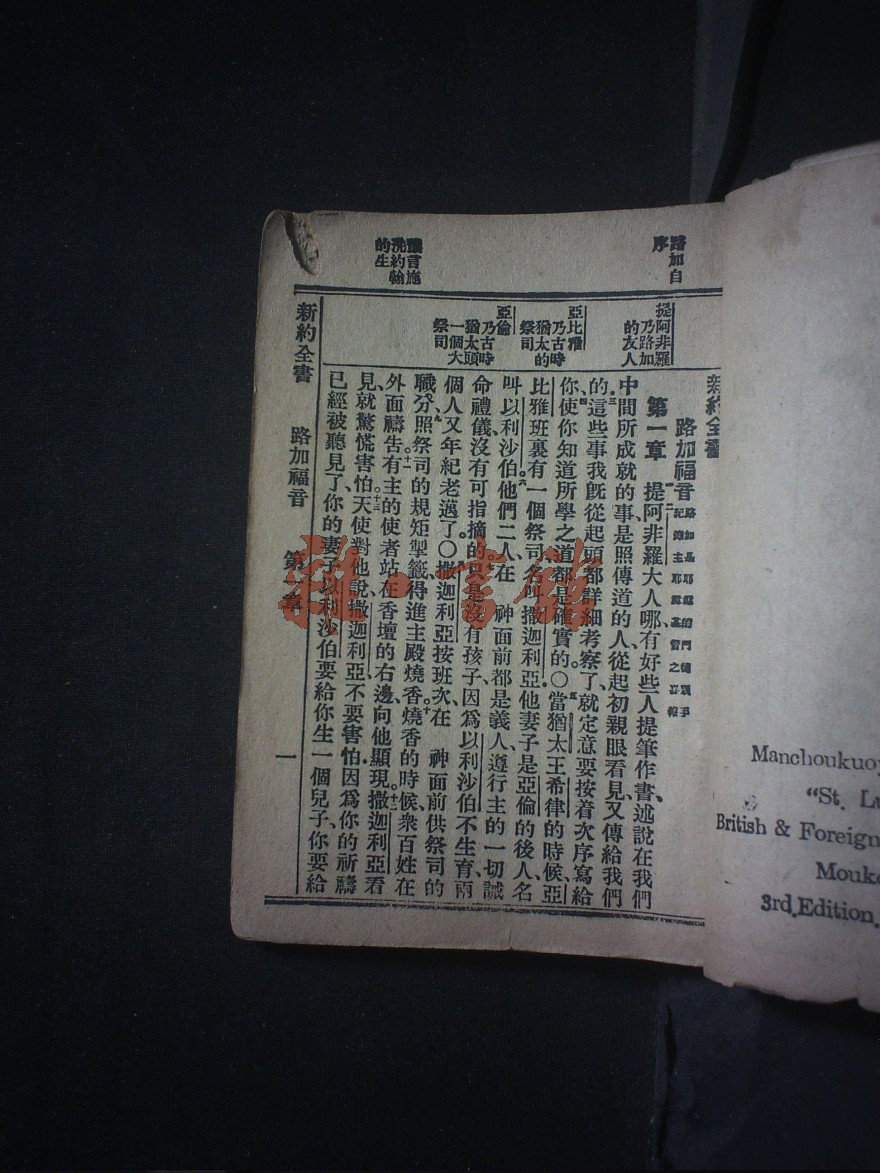 路加自
序
預言施
洗約翰
的生
提阿非羅
乃路加
的友人
亞比雅
乃古時
猶太的
祭司
亞倫
乃古時
猶太頭
一個大
祭司
新約全書
路加福音 路加是耶穌的門徒親手
紀錄主耶穌基督之喜報
第一章 一提阿非羅大人哪、有好些人提筆作書、述說在我們
中間所成就的事、二是照傳道的人、從起初親眼看見、又傳給我們
的、三這些事我旣從起頭都詳細考察了、就定意要按着次序寫給
你、四使你知道所學之道都是確實的。〇五當猶太王希律的時候、亞
比雅班裏有一個祭司、名叫撒迦利亞、他妻子是亞倫的後人、名
叫以利沙伯。六他們二人、在 神面前都是義人、遵行主的一切誡
命禮儀、沒有可指摘的。七只是沒有孩子、因爲以利沙伯不生育、兩
個人又年紀老邁了。〇八撒迦利亞按班次、在 神面前供祭司的
職分、九照祭司的規矩掣籤、得進主殿燒香。十燒香的時候、衆百姓在
外面禱告。十一有主的使者站在香壇的右邊、向他顯現。十二撒迦利亞看
見、就驚慌害怕。十三天使對他說、撒迦利亞、不要害怕、因爲你的祈禱
已經被聽見了、你的妻子以利沙伯要給你生一個兒子、你要給
新約全書 路加福音 第一章 一
Manchoukuo
"St. Lu
British & Foreign
Mouk
3rd.Edition.
雜·書館